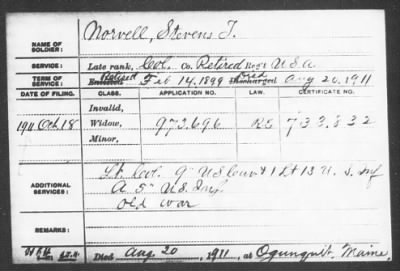 NAME OF SOLDIER: Norvell, Stevens T.
SERVICE: Late rank, Col. Co. Retired Reg't U.S.A.
TERM OF SERVICE: Enlisted Retired Feb 14, 1899 Discharged Died Aug 20, 1911
DATE OF FILING. CLASS. APPLICATION NO. LAW. CERTIFICATE NO.
Invalid,
1911 Oct 18 Widow, 973.696 733.332
Minor,
ADDITIONAL SERVICES: Lt. Col. 9" US Cav & 1 Lt 13 U.S. Inf
A 5" U.S. Inf
Old War
REMARKS:
Died Aug 20, 1911, at Ogunquit, Maine